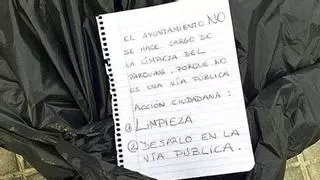 EL AYUNTAMIENTO NO
SE HACE CARGO DE
LA LIMPIEZA DEL
PARQUING, PORQUE NO
ES UNA VÍA PÚBLICA
ACCIÓN CIUDADANA:
① LIMPIEZA
② DEJARLO EN LA
VÍA PÚBLICA.